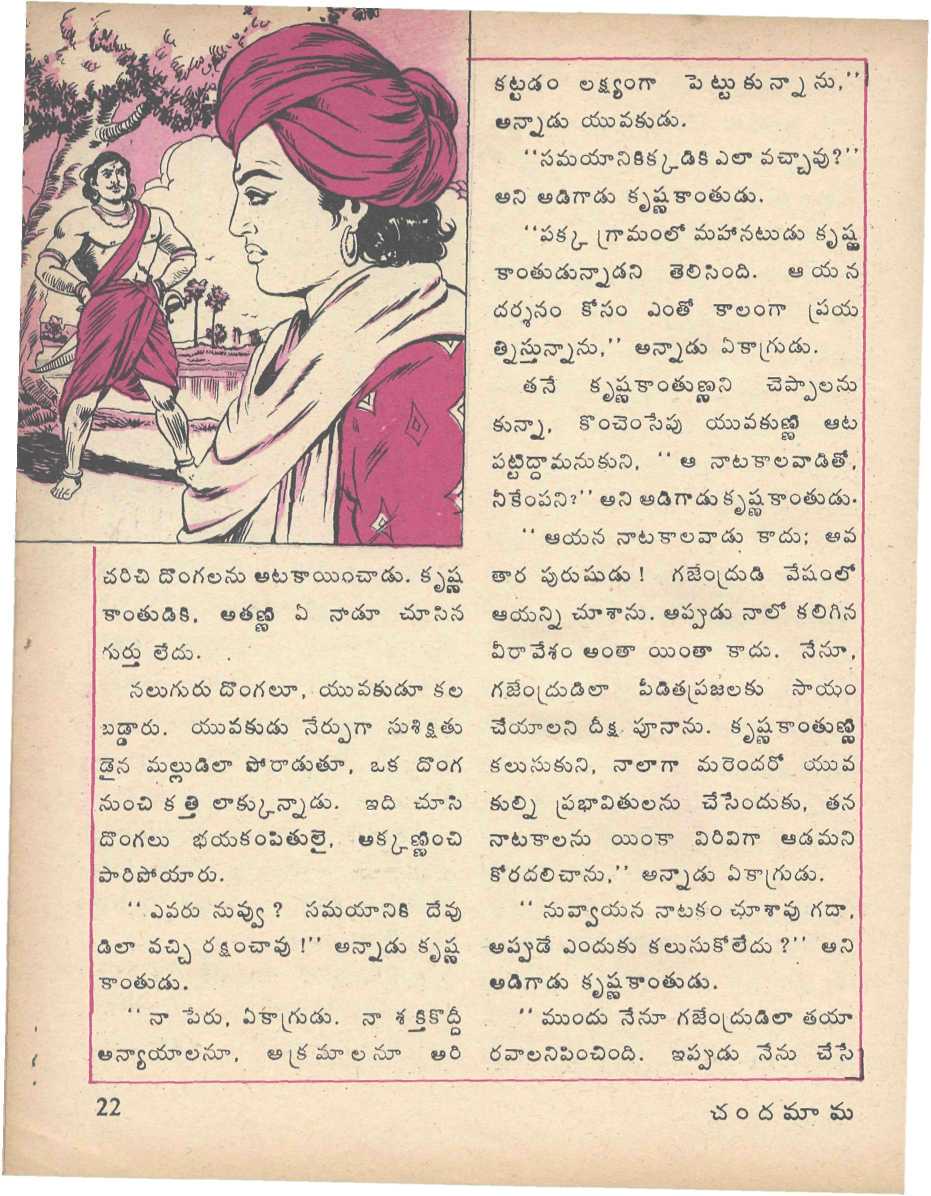 చరిచి దొంగలను అటకాయించాడు. కృష్ణ
కాంతుడికి, అతణ్ణి ఏ నాడూ చూసిన
గుర్తు లేదు.
నలుగురు దొంగలూ, యువకుడూ కల
బడ్డారు. యువకుడు నేర్పుగా సుశిక్షితు
డైన మల్లుడిలా పోరాడుతూ, ఒక దొంగ
నుంచి కత్తి లాక్కున్నాడు. ఇది చూసి
దొంగలు భయకంపితులై, అక్కణ్ణించి
పారిపోయారు.
‘‘ఎవరు నువ్వు? సమయానికి దేవు
డిలా వచ్చి రక్షించావు!’’ అన్నాడు కృష్ణ
కాంతుడు.
‘‘నా పేరు, ఏకాగ్రుడు. నా శక్తికొద్దీ
అన్యాయాలనూ, అక్రమాలనూ అరి
కట్టడం లక్ష్యంగా పెట్టుకున్నాను,’’
అన్నాడు యువకుడు.
‘‘సమయానికిక్కడికి ఎలా వచ్చావు?’’
అని అడిగాడు కృష్ణకాంతుడు.
‘‘పక్క గ్రామంలో మహానటుడు కృష్ణ
కాంతుడున్నాడని తెలిసింది. ఆయన
దర్శనం కోసం ఎంతో కాలంగా ప్రయ
త్నిస్తున్నాను,’’ అన్నాడు ఏకాగ్రుడు.
తనే కృష్ణకాంతుణ్ణని చెప్పాలను
కున్నా, కొంచెంసేపు యువకుణ్ణి ఆట
పట్టిద్దామనుకుని, ‘‘ఆ నాటకాలవాడితో,
నీకేంపని?’’ అని అడిగాడు కృష్ణకాంతుడు.
‘‘ఆయన నాటకాలవాడు కాదు; అవ
తార పురుషుడు! గజేంద్రుడి వేషంలో
ఆయన్ని చూశాను. అప్పుడు నాలో కలిగిన
వీరావేశం అంతా యింతా కాదు. నేనూ,
గజేంద్రుడిలా పీడితప్రజలకు సాయం
చేయాలని దీక్ష పూనాను. కృష్ణకాంతుణ్ణి
కలుసుకుని, నాలాగా మరెందరో యువ
కుల్ని ప్రభావితులను చేసేందుకు, తన
నాటకాలను యింకా విరివిగా ఆడమని
కోరదలిచాను,’’ అన్నాడు ఏకాగ్రుడు.
‘‘నువ్వాయన నాటకం చూశావు గదా,
అప్పుడే ఎందుకు కలుసుకోలేదు?’’ అని
అడిగాడు కృష్ణకాంతుడు.
‘‘ముందు నేనూ గజేంద్రుడిలా తయా
రవాలనిపించింది. ఇప్పుడు నేను చేసే
22
చందమామ